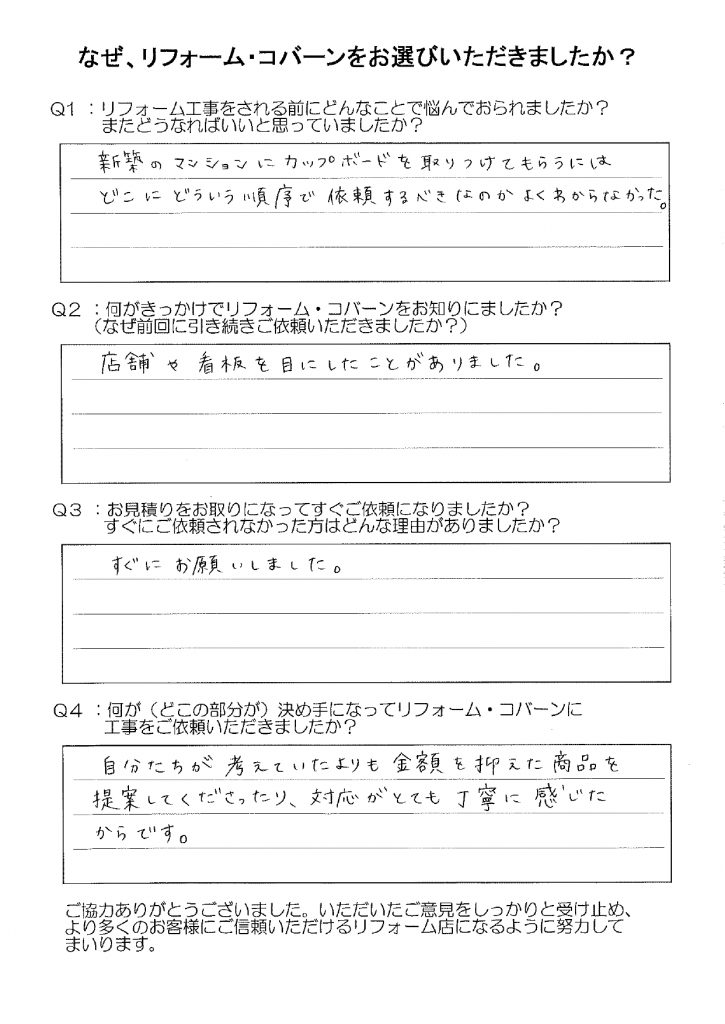 なぜ、リフォーム・コバーンをお選びいただきましたか？
Q1：リフォーム工事をされる前にどんなことで悩んでおられましたか？
またどうなればいいと思っていましたか？
新築のマンションにカップボードを取りつけてもらうには
どこにどういう順序で依頼するべきなのかよくわからなかった。
Q2：何がきっかけでリフォーム・コバーンをお知りにましたか？
（なぜ前回に引き続きご依頼いただきましたか？）
店舗や看板を目にしたことがありました。
Q3：お見積りをお取りになってすぐご依頼になりましたか？
すぐにご依頼されなかった方はどんな理由がありましたか？
すぐにお願いしました。
Q4：何が（どこの部分が）決め手になってリフォーム・コバーンに
工事をご依頼いただきましたか？
自分たちが考えていたよりも金額を抑えた商品を
提案してくださったり、対応がとても丁寧に感じた
からです。
ご協力ありがとうございました。いただいたご意見をしっかりと受け止め、
より多くのお客様にご信頼いただけるリフォーム店になるように努力して
まいります。